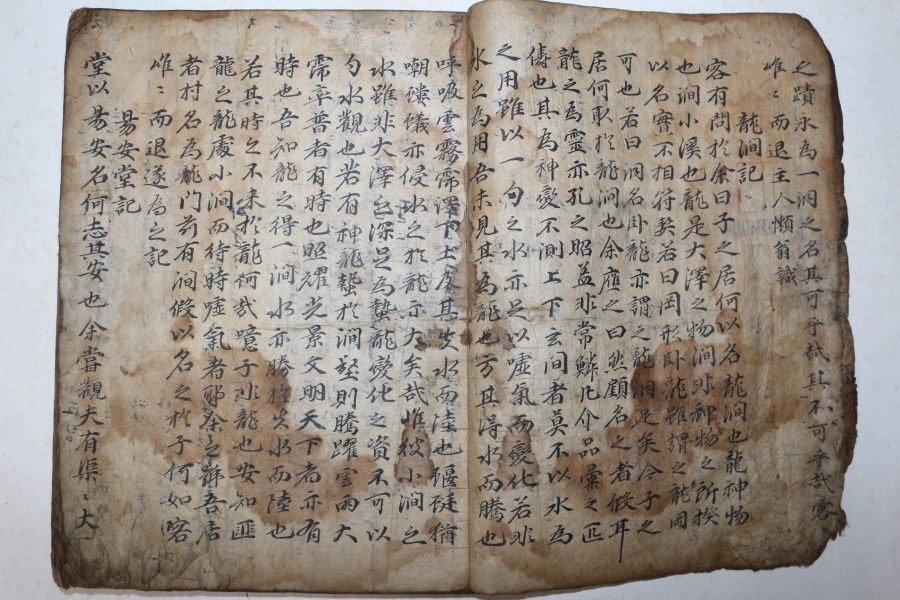 之蹟永為一洞之名其可乎哉其不可乎哉客
唯〻而退主人懶翁識
龍澗記
客有問於余曰子之居何以名龍澗也龍神物
也澗小溪也龍是大澤之物澗非神物之所
以名實不相符矣若曰岡形卧龍雖謂之龍岡
可也若曰洞名卧龍亦謂之龍洞足矣今子之
居何取於龍澗也余應之曰然顧名之者
龍之為靈亦孔之昭盖非常鱗凡介品彙之匹
儔也其為神變不測上下玄間者莫不以水為
之用雖以一勺之水亦足以噓氣而變化若非
水之為用吾未見其為龍也方其得水而騰也
呼吸雲霧霈澤下土及其失水而陸也蝘蜓猶
嘲螻蟻亦侵水之於龍亦大矣哉惟彼小澗之
水雖非大澤之深足為蟄龍變化之資不可以
勺水觀也若有神龍蟄於澗壑則騰躍雲雨大
霈率普者有時也照耀光景文明天下者亦有
時也吾知龍之得一澗水亦勝於失水而陸也
若其時之不来於龍何哉噫子非龍也安知匪
龍之龍處小澗而待時噓氣者耶余之莊吾居
者村名為龍门前有澗假以名之於子何如客
唯〻而退遂為之記
易安堂記
堂以易安名何志其安也余嘗觀夫有渠〻大